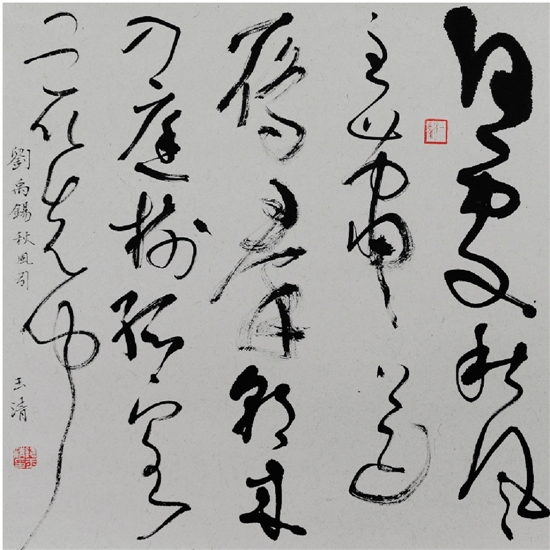 何處秋風
至蕭〻送
鴈羣朝來
入庭樹孤客
最先聞
劉禹錫秋風引
玉清